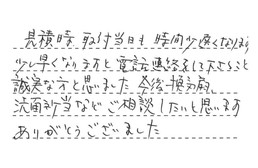 見積時 取付当日も 時間が遅くなります
少し早くなりますと 電話連絡をして下さること
誠実な方と思いました 今後 換気扇
洗面所など ご相談したいと思います
ありがとうございました